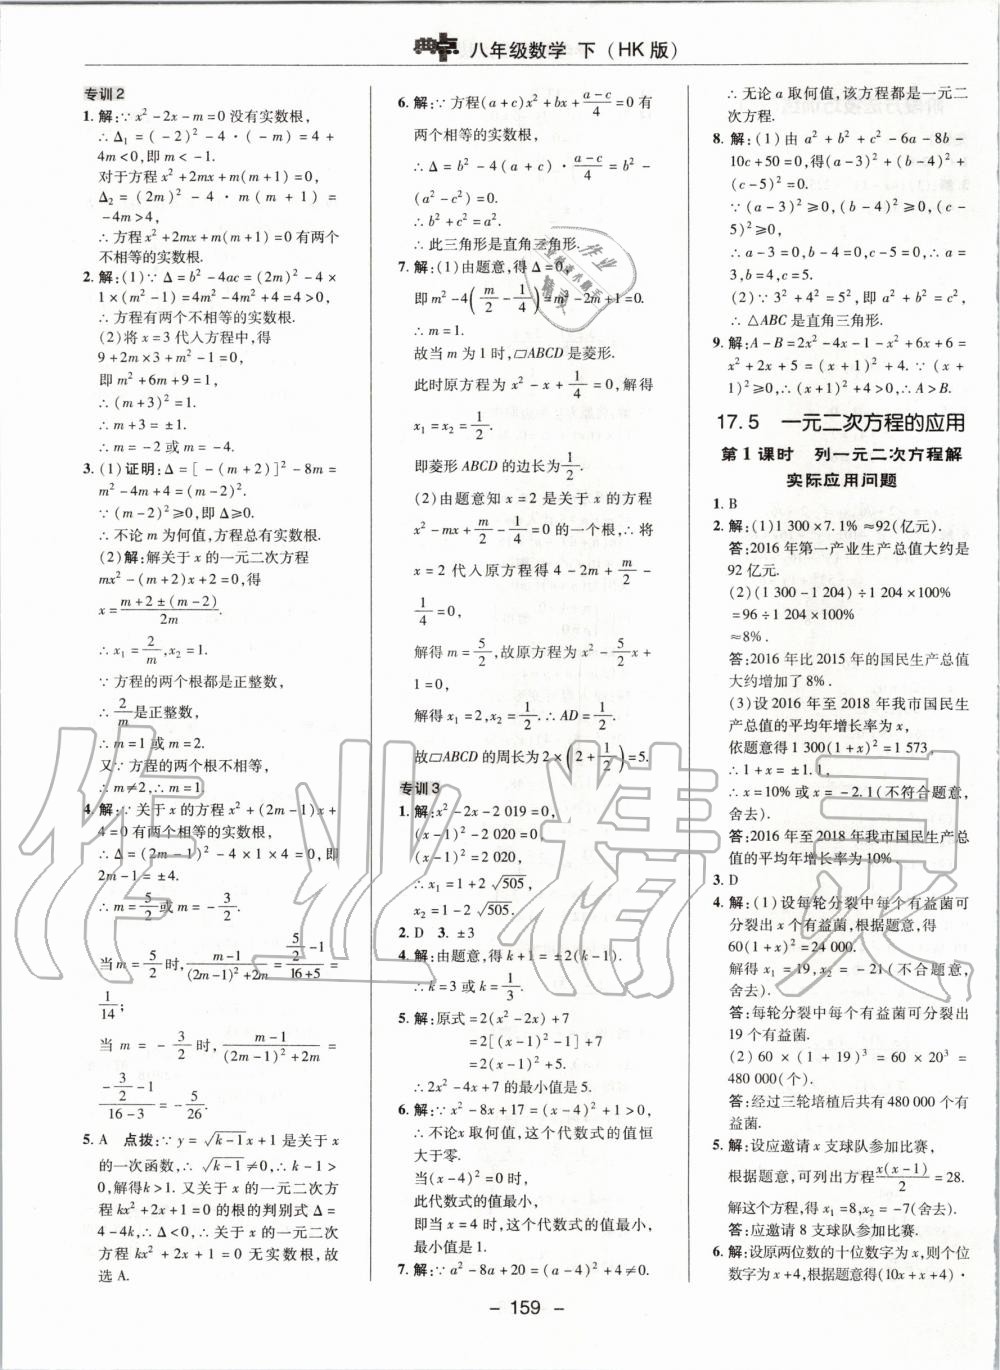 典中点 八年级数学 下（HK版）
专训2
1. 解:∵x²-2x-m=0没有实数根,
∴Δ₁=(-2)²-4·(-m)=4+
4m<0,即m<-1.
对于方程x²+2mx+m(m+1)=0,
Δ₂=(2m)²-4·m(m+1)=
-4m>4,
∴方程x²+2mx+m(m+1)=0有两个
不相等的实数根.
2. 解:(1)∵Δ=b²-4ac=(2m)²-4×
1×(m²-1)=4m²-4m²+4=4>0,
∴方程有两个不相等的实数根.
(2)将x=3代入方程中,得
9+2m×3+m²-1=0,
即m²+6m+9=1,
∴(m+3)²=1.
∴m+3=±1.
∴m=-2或m=-4.
3. (1)证明:Δ=[-(m+2)]²-8m=
m²-4m+4=(m-2)².
∵(m-2)²≥0,即Δ≥0.
∴不论m为何值,方程总有实数根.
(2)解:解关于x的一元二次方程
mx²-(m+2)x+2=0,得
x=(m+2±(m-2))/2m.
∴x₁=2/m,x₂=1.
∵方程的两个根都是正整数,
∴2/m是正整数,
∴m=1或m=2.
又∵方程的两个根不相等,
∴m≠2,∴m=1.
4. 解:∵关于x的方程x²+(2m-1)x+
4=0有两个相等的实数根,
∴Δ=(2m-1)²-4×1×4=0,即
2m-1=±4.
∴m=5/2或m=-3/2.
当m=5/2时,(m-1)/((2m-1)²+2m)=(5/2-1)/(16+5)=
1/14;
当m=-3/2时,(m-1)/((2m-1)²+2m)=
(-3/2-1)/(16-3)=-5/26.
5. A 点拨:∵y=√(k-1)x+1是关于x
的一次函数,∴√(k-1)≠0,∴k-1>
0,解得k>1.又关于x的一元二次方
程kx²+2x+1=0的根的判别式Δ=
4-4k,∴Δ<0,∴关于x的一元二次
方程kx²+2x+1=0无实数根,故
选A.
6. 解:∵方程(a+c)x²+bx+(a-c)/4=0有
两个相等的实数根,
∴Δ=b²-4(a+c)·(a-c)/4=b²-
(a²-c²)=0.
∴b²+c²=a².
∴此三角形是直角三角形.
7. 解:(1)由题意,得Δ=0,
即m²-4(m/2-1/4)=m²-2m+1=0.
∴m=1.
故当m为1时,▱ABCD是菱形.
此时原方程为x²-x+1/4=0,解得
x₁=x₂=1/2.
即菱形ABCD的边长为1/2.
(2)由题意知x=2是关于x的方程
x²-mx+m/2-1/4=0的一个根,∴将
x=2代入原方程得4-2m+m/2-
1/4=0,
解得m=5/2,故原方程为x²-5/2x+
1=0,
解得x₁=2,x₂=1/2.∴AD=1/2.
故▱ABCD的周长为2×(2+1/2)=5.
专训3
1. 解:x²-2x-2 019=0,
(x-1)²-2 020=0,
(x-1)²=2 020,
∴x₁=1+2√505,
x₂=1-2√505.
2. D 3. ±3
4. 解:由题意,得k+1=±2(k-1).
∴k=3或k=1/3.
5. 解:原式=2(x²-2x)+7
=2[(x-1)²-1]+7
=2(x-1)²+5.
∴2x²-4x+7的最小值是5.
6. 解:∵x²-8x+17=(x-4)²+1>0,
∴不论x取何值,这个代数式的值恒
大于零.
当(x-4)²=0时,
此代数式的值最小,
即当x=4时,这个代数式的值最小,
最小值是1.
7. 解:∵a²-8a+20=(a-4)²+4≠0.
∴无论a取何值,该方程都是一元二
次方程.
8. 解:(1)由a²+b²+c²-6a-8b-
10c+50=0,得(a-3)²+(b-4)²+
(c-5)²=0.
∵(a-3)²≥0,(b-4)²≥0,(c-
5)²≥0,
∴a-3=0,b-4=0,c-5=0.∴a=
3,b=4,c=5.
(2)∵3²+4²=5²,即a²+b²=c²,
∴△ABC是直角三角形.
9. 解:A-B=2x²-4x-1-x²+6x+6=
x²+2x+5=(x+1)²+4.∵(x+
1)²≥0,∴(x+1)²+4>0,∴A>B.
17.5 一元二次方程的应用
第1课时 列一元二次方程解
实际应用问题
1. B
2. 解:(1)1 300×7.1%≈92(亿元).
答:2016年第一产业生产总值大约是
92亿元.
(2)(1 300-1 204)÷1 204×100%
=96÷1 204×100%
≈8%.
答:2016年比2015年的国民生产总值
大约增加了8%.
(3)设2016年至2018年我市国民生
产总值的平均年增长率为x,
依题意得1 300(1+x)²=1 573,
∴1+x=±1.1,
∴x=10%或x=-2.1(不符合题意,
舍去).
答:2016年至2018年我市国民生产总
值的平均年增长率为10%.
3. D
4. 解:(1)设每轮分裂中每个有益菌可
分裂出x个有益菌,根据题意,得
60(1+x)²=24 000.
解得x₁=19,x₂=-21(不合题意,
舍去).
答:每轮分裂中每个有益菌可分裂出
19个有益菌.
(2)60×(1+19)³=60×20³=
480 000(个).
答:经过三轮培植后共有480 000个有
益菌.
5. 解:设应邀请x支球队参加比赛,
根据题意,可列出方程x(x-1)/2=28.
解这个方程,得x₁=8,x₂=-7(舍去).
答:应邀请8支球队参加比赛.
6. 解:设原两位数的十位数字为x,则个位
数字为x+4,根据题意得(10x+x+4)·
- 159 -
作业精灵